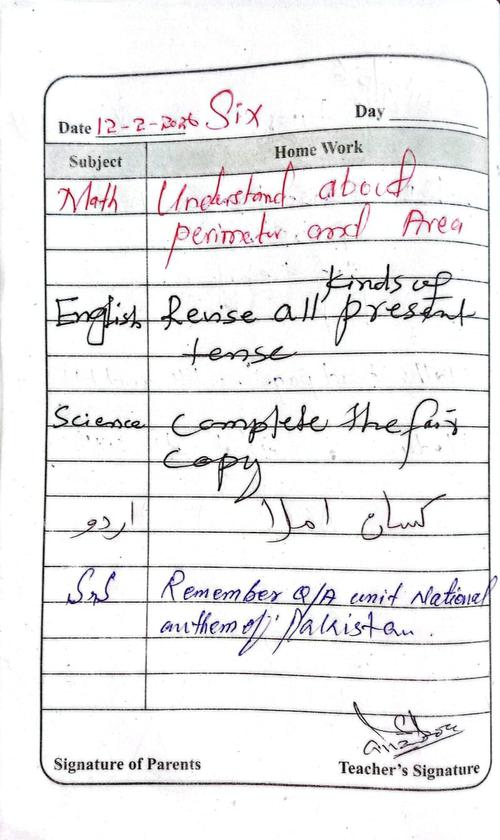 Date 12-2-2026 Six Day
Subject Home Work
Math Understand about
perimeter and Area
kinds of
English Revise all present
tense
Science Complete the fair
copy
اردو کسان املا
SnS Remember Q/A unit National
anthem of Pakistan.
Signature of Parents Teacher's Signature